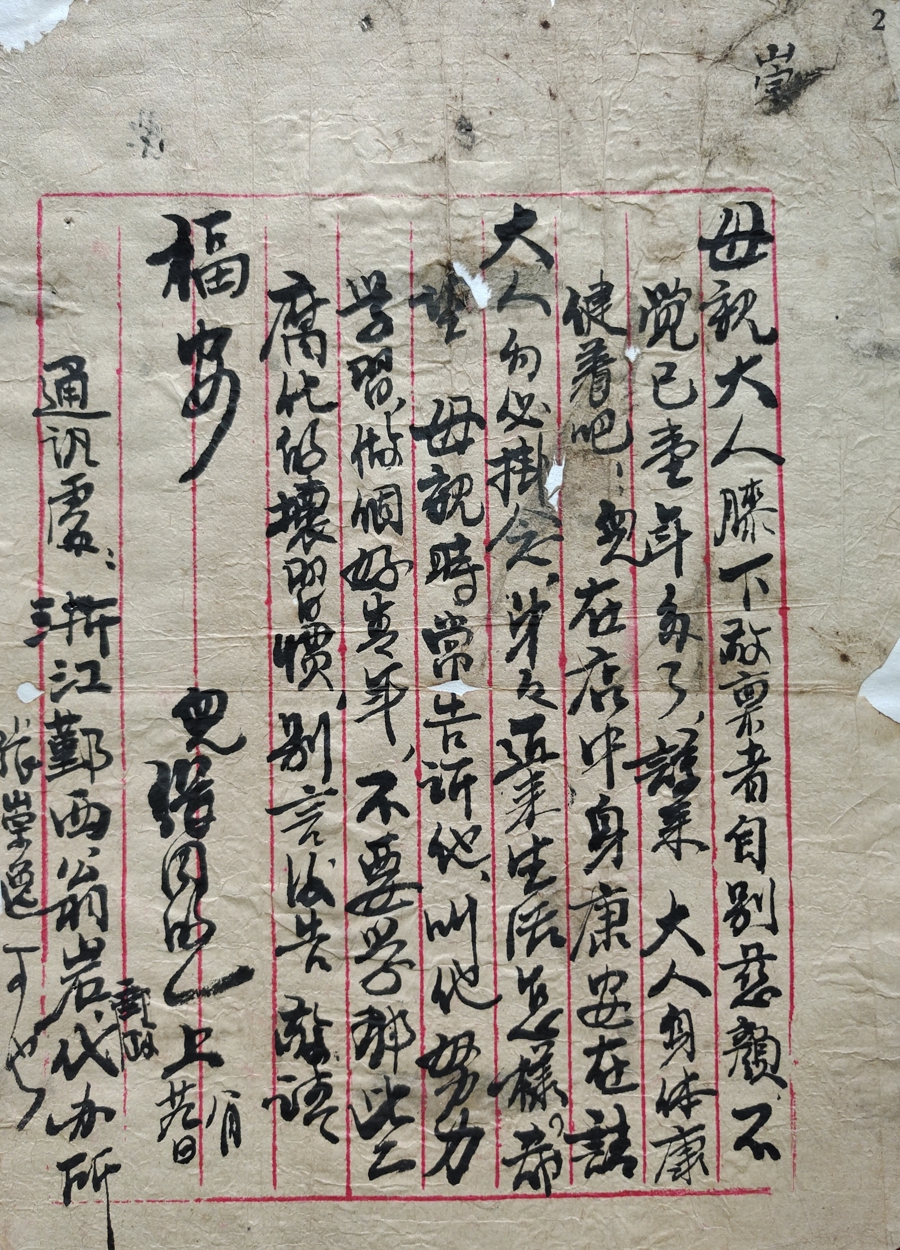 2
崇
母親大人膝下敬稟者自別慈顏不
覺已壹年多了,諒來 大人身体康
健着吧!兒在店中身康安在請
大人勿必掛念,弟々近来生活怎樣?希
望 母親時常告訴他,叫他努力
学習,做個好青年,不要学那些
腐化的壞習慣,別言後告 敬請
福安
兒 上
月 日
通訊處:浙江鄞西翁岩代办所
郵政
張崇逸 可也